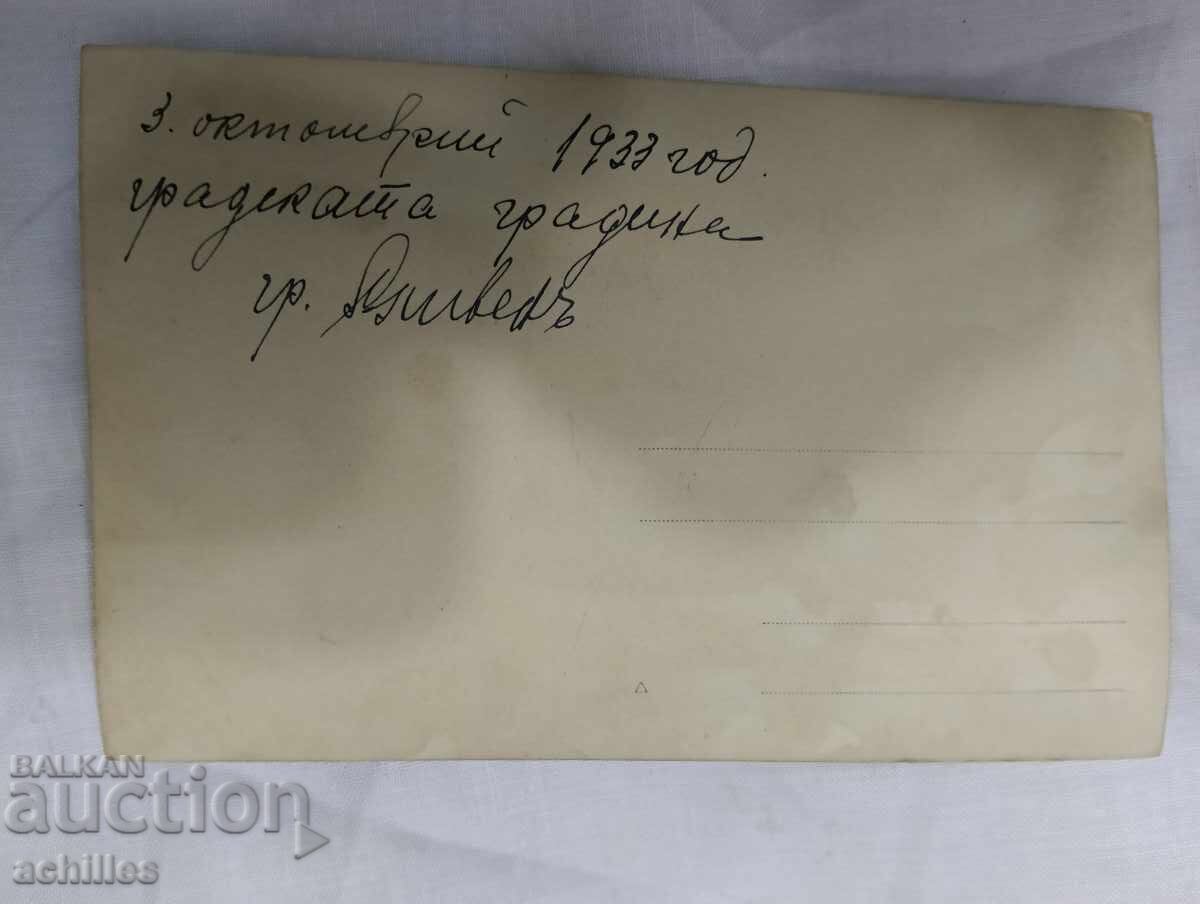 3. октомврий 1933 год.
градската градина
гр.
BALKAN
auction
achilles